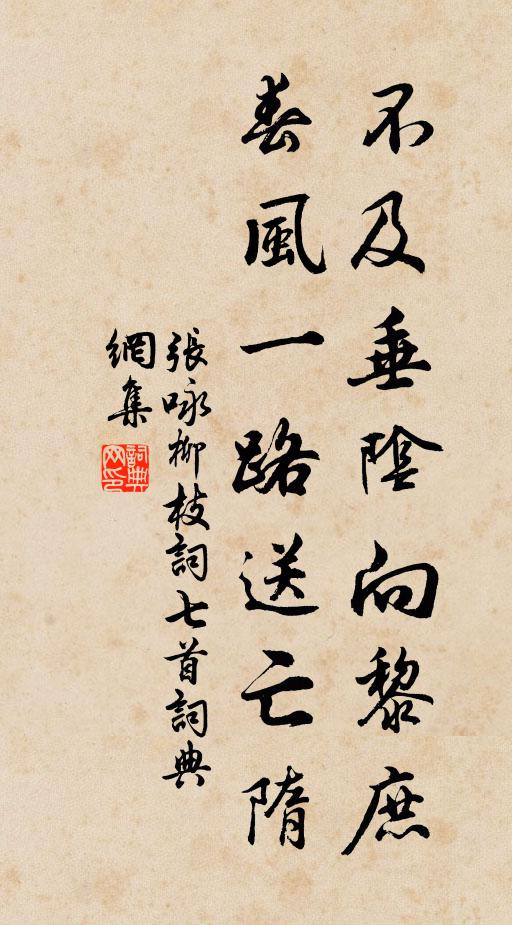 不及垂陰向黎庶
春風一路送亡隋
張咏柳枝詞七首詞典
網集
詞典
网印